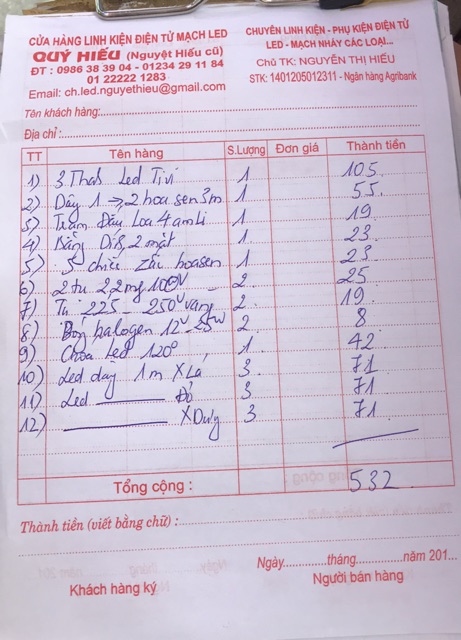 CỬA HÀNG LINH KIỆN ĐIỆN TỬ MẠCH LED
QUÝ HIẾU (Nguyệt Hiếu cũ)
ĐT : 0986 38 39 04 - 01234 29 11 84
01 22222 1283
Email: ch.led.nguyethieu@gmail.com
CHUYÊN LINH KIỆN - PHỤ KIỆN ĐIỆN TỬ
LED - MẠCH NHÁY CÁC LOẠI...
Chủ TK: NGUYỄN THỊ HIẾU
STK: 1401205012311 - Ngân hàng Agribank
Tên khách hàng:
Địa chỉ :
TT Tên hàng S.Lượng Đơn giá Thành tiền
1) 3 Led Tivi 1 105
2) Dây 1 → 2 hoa sen 3m 1 55
3) Trăm Dây Loa 4 amli 1 19
4) Băng Díß 2 mặt 1 23
5) 5 chiếc zắc hoasen 1 23
6) 2 tụ 2,2mf 100V 2 25
7) Tụ 225 - 250V vàng 2 19
8) Bóng halogen 12V - 25W 2 8
9) Chóa Led 120° 1 42
10) Led day 1m X Lá 3 71
11) Led Đỏ 3 71
12) X Dương 3 71
Tổng cộng : 532
Thành tiền (viết bằng chữ) :
Ngày............tháng...............năm 201...
Khách hàng ký Người bán hàng